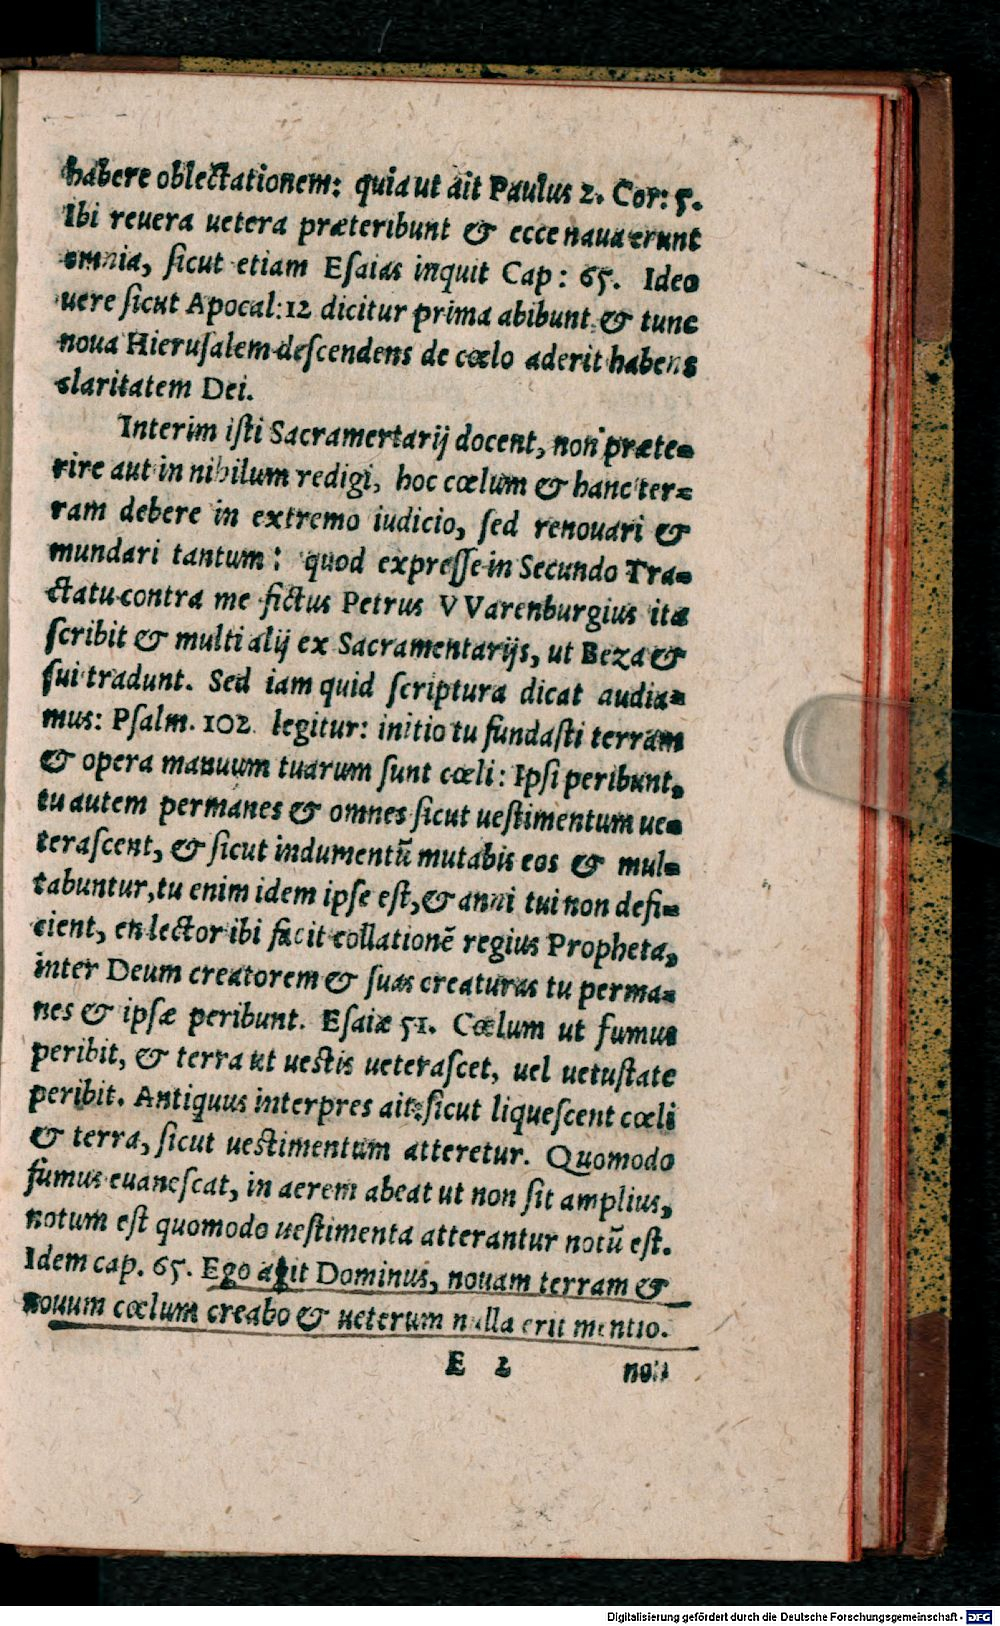 habere oblectationem: quia ut ait Paulus 2. Cor: 5.
Ibi reuera uetera præteribunt & ecce naua erunt
omnia, ſicut etiam Eſaias inquit Cap: 65. Ideo
uere ſicut Apocal: 12 dicitur prima abibunt & tunc
noua Hieruſalem deſcendens de cœlo aderit habens
claritatem Dei.
Interim iſti Sacramertarij docent, non præte=
rire aut in nihilum redigi, hoc cœlum & hanc ter=
ram debere in extremo iudicio, ſed renouari &
mundari tantum: quod expreſſe in Secundo Tra=
ctatu contra me fictus Petrus VVarenburgius ita
ſcribit & multi alij ex Sacramentarijs, ut Beza &
ſui tradunt. Sed iam quid ſcriptura dicat audia=
mus: Pſalm. 102. legitur: initio tu fundaſti terram
& opera manuum tuarum ſunt cœli: Ipſi peribunt,
tu autem permanes & omnes ſicut ueſtimentum ue=
teraſcent, & ſicut indumentũ mutabis eos & mul=
tabuntur, tu enim idem ipſe eſt, & anni tui non defi=
cient, en lector ibi facit collationẽ regius Propheta,
inter Deum creatorem & ſuas creaturas tu perma=
nes & ipſæ peribunt. Eſaiæ 51. Cœlum ut fumus
peribit, & terra ut ueſtis ueteraſcet, uel uetuſtate
peribit. Antiquus interpres ait: ſicut liqueſcent cœli
& terra, ſicut ueſtimentum atteretur. Quomodo
fumus euaneſcat, in aerem abeat ut non ſit amplius,
notum eſt quomodo ueſtimenta atterantur notũ eſt.
Idem cap. 65. Ego ait Dominus, nouam terram &
nouum cœlum creabo & ueterum nulla erit mentio.
E 2 non
Digitalisierung gefördert durch die Deutsche Forschungsgemeinschaft - DFG